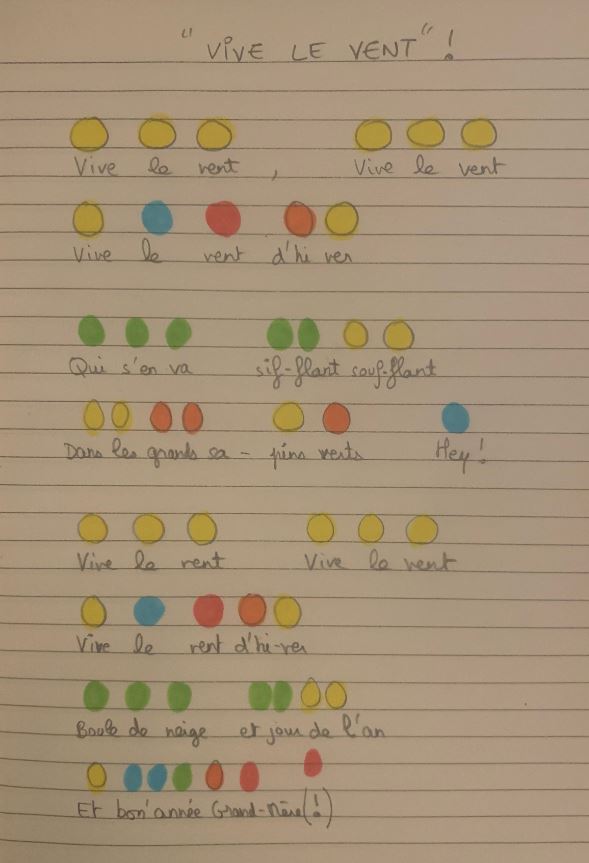 "VIVE LE VENT"!
Vive le vent, Vive le vent
Vive le vent d'hi ver
Qui s'en va sif-flant souf-flant
Dans les grands sa-pins verts Hey!
Vive le vent Vive le vent
Vive le vent d'hi-ver
Boule de neige et jour de l'an
Et bon'année Grand-Mère(!)